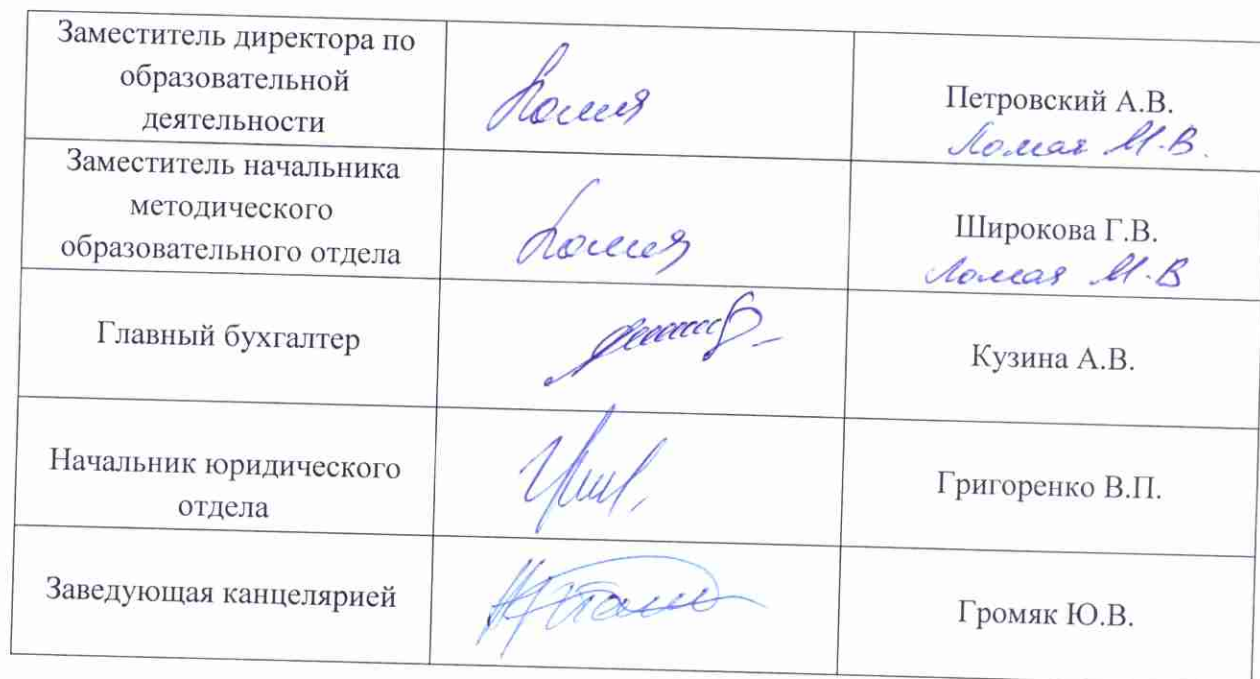 Заместитель директора по
образовательной
деятельности
Петровский А.В.
Ломая М.В.
Заместитель начальника
методического
образовательного отдела
Широкова Г.В.
Ломая М.В
Главный бухгалтер
Кузина А.В.
Начальник юридического
отдела
Григоренко В.П.
Заведующая канцелярией
Громяк Ю.В.